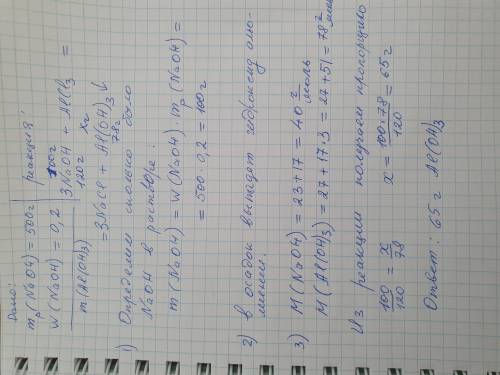 Дано:
mр(NaOH) = 500г
W(NaOH) = 0,2
m(Al(OH)3)
реакция:
100г xг
3NaOH + AlCl3 =
120г
= 3NaCl + Al(OH)3↓
78г
1) Определим сколько было
NaOH в растворе:
m(NaOH) = W(NaOH)·mр(NaOH) =
= 500·0,2 = 100г
2) в осадок выпадет гидроксид алю-
миния.
3) M(NaOH) = 23+17 = 40 г/моль
M(Al(OH)3) = 27+17·3 = 27+51 = 78 г/моль
Из реакции получаем пропорцию
100/120 = x/78 x = 100·78/120 = 65г
Ответ: 65г Al(OH)3